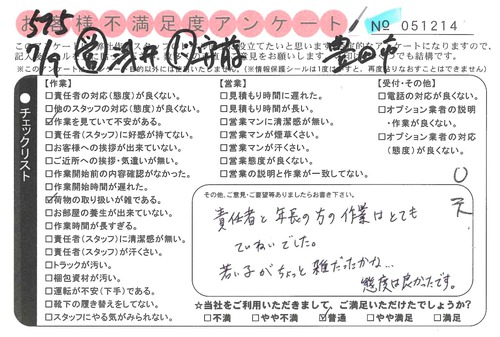 お客様不満足度アンケート
№ 051214
575
7/9
豊田市
※このアンケートは
(※情報保護シールは1度はすと、再度貼りなおすことはできません)
チェックリスト
【作業】
□責任者の対応(態度)が良くない。
□他のスタッフの対応(態度)が良くない。
☑作業を見ていて不安がある。
□責任者(スタッフ)に好感が持てない。
□お客様への挨拶が出来ていない。
□ご近所への挨拶・気遣いが無い。
□作業開始前の内容確認がなかった。
□作業開始時間が遅れた。
☑荷物の取り扱いが雑である。
□お部屋の養生が出来ていない。
□作業時間が長すぎる。
□責任者(スタッフ)に清潔感が無い。
□責任者(スタッフ)が汗さい。
□トラックが汚い。
□梱包資材が汚い。
□運転が不安(下手)である。
□靴下の履き替えをしてない。
□スタッフにやる気がみられない。
【営業】
□見積もり時間に遅れた。
□見積もり時間が長い。
□営業マンに清潔感が無い。
□営業マンが煙草くさい。
□営業マンが汗さい。
□営業態度が良くない。
□営業の説明と作業が一致してない。
【受付・その他】
□電話の対応が良くない。
□オプション業者の説明・作業が良くない。
□オプション業者の対応(態度)が良くない。
その他、ご意見・ご要望等ありましたらお書き下さい。
責任者と年長の方の作業はとても
ていねいでした。
若い子がちょっと雑だったかな…
態度は良かったです。
☆当社をご利用いただきまして、ご満足いただけたでしょうか?
□不満 □やや不満 ☑普通 □やや満足 □満足